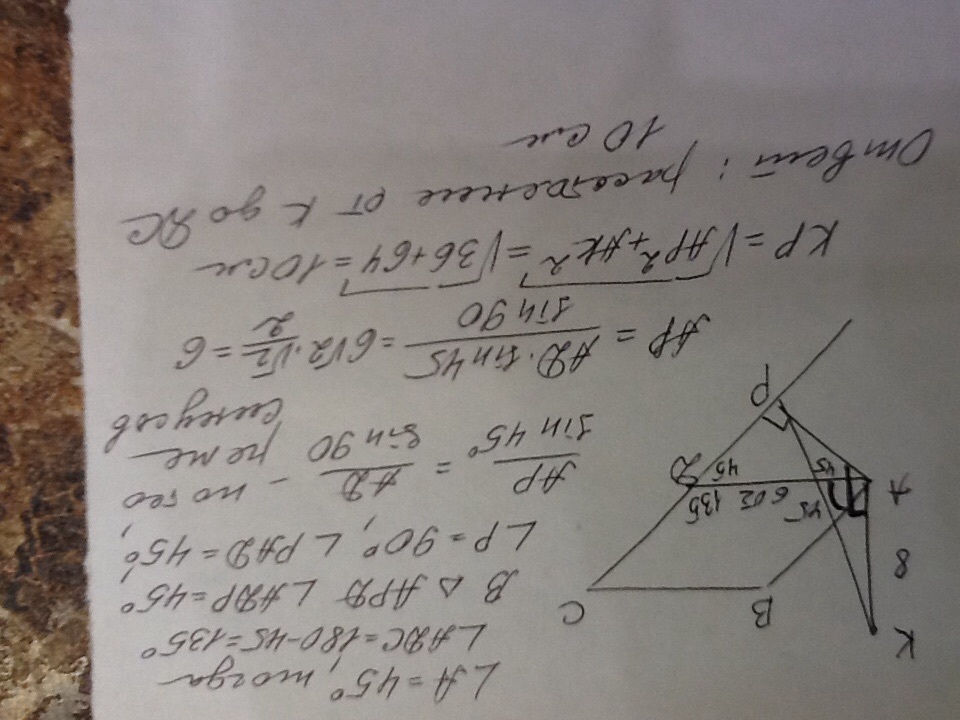 ∠A = 45°, тогда
∠ADC = 180 - 45 = 135°
В △ APD ∠ADP = 45°
∠P = 90°, ∠PAD = 45°,
AP / sin 45° = AD / sin 90 - по теореме синусов
AP = AD · sin 45 / sin 90 = 6√2 · √2/2 = 6
KP = √AP² + AK² = √36 + 64 = 10 см
Ответ: расстояние от K до DC
10 см
K
8
B
C
A
45
6√2
135
D
45
45
P